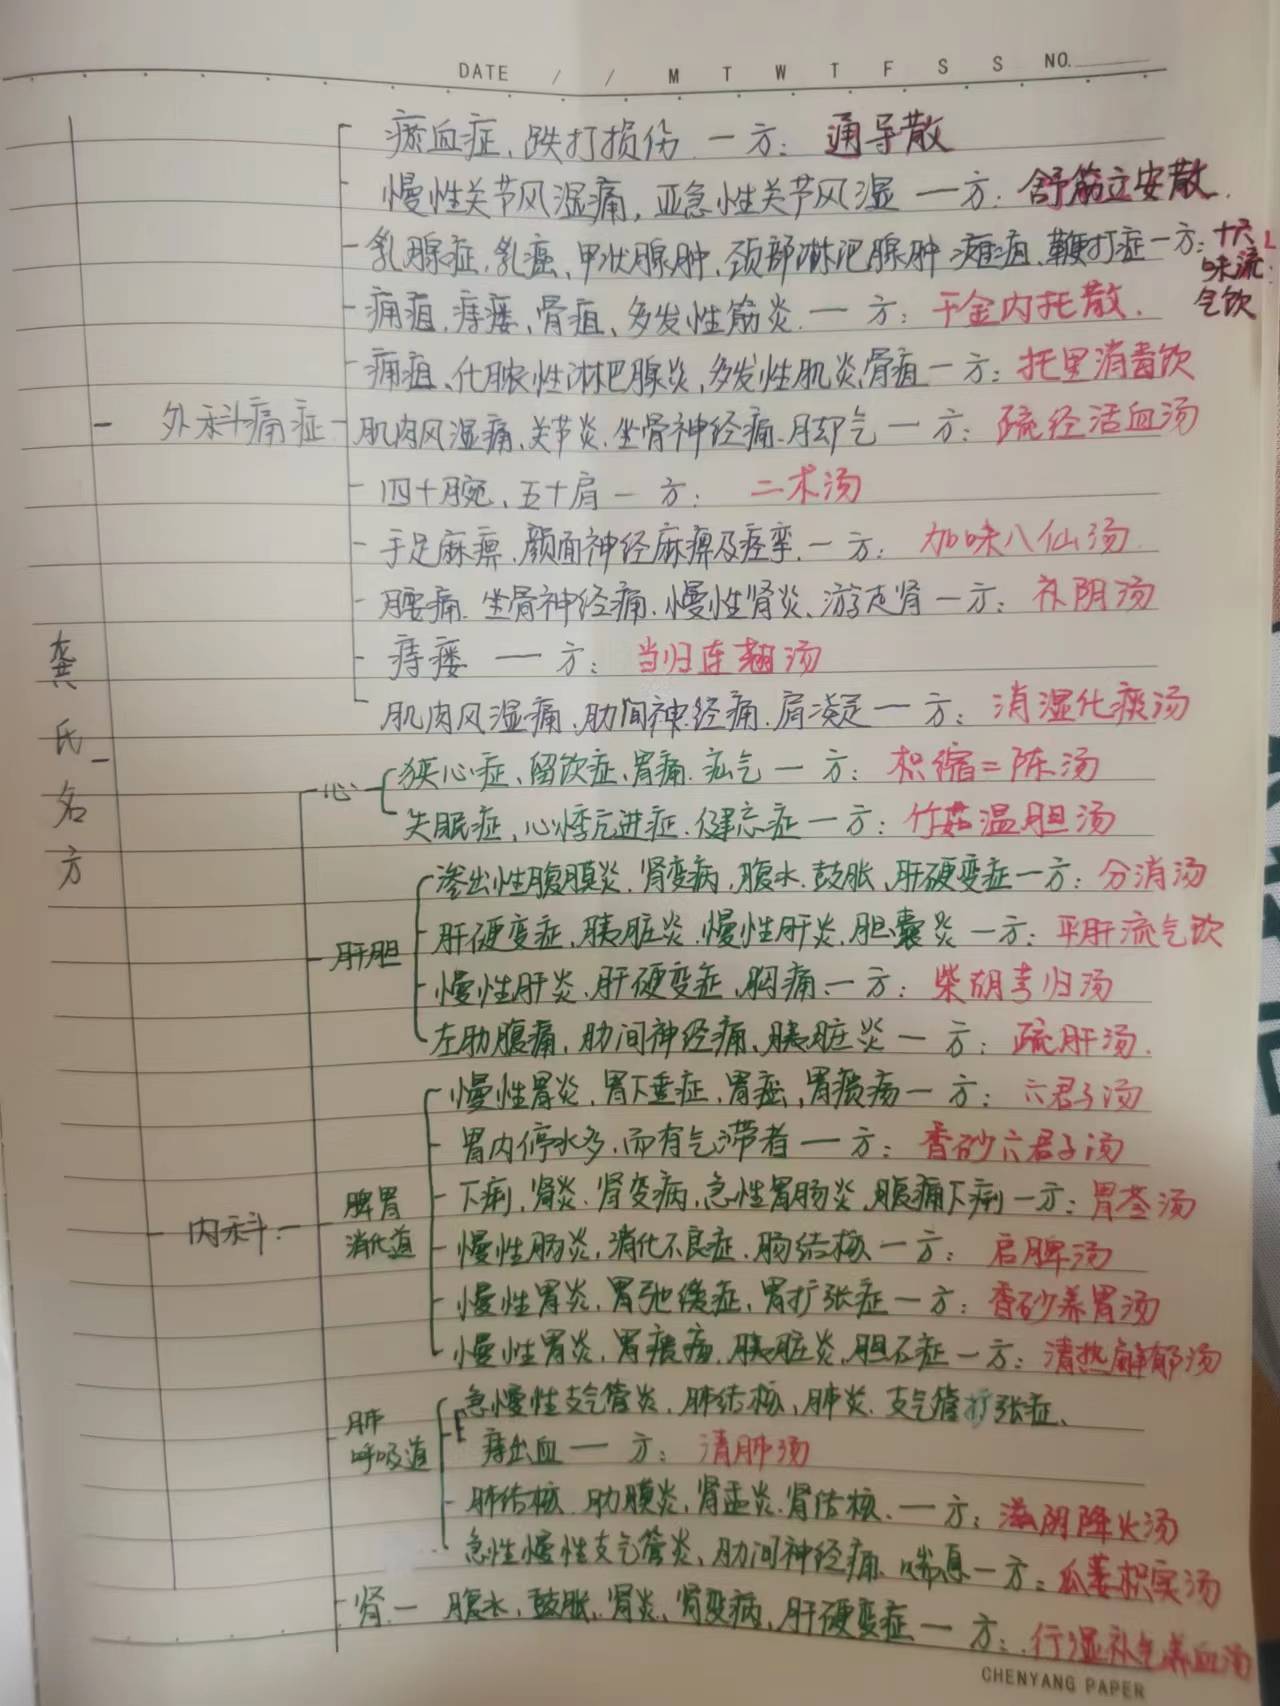 DATE / / M T W T F S S NO.
瘀血症、跌打损伤 一方：通导散
慢性关节风湿痛，亚急性关节风湿 一方：舒筋立安散.
乳腺症、乳癌、甲状腺肿、颈部淋巴腺肿 瘫疽、鞭打症一方：十六
味流
气饮
痈疽、痔瘘、骨疽、多发性筋炎. 一方：千金内托散.
痈疽、化脓性淋巴腺炎，多发性肌炎，骨疽一方：托里消毒饮
外科痛症
肌肉风湿痛、关节炎、坐骨神经痛、脚气 一方：疏经活血汤
四十腕、五十肩 一方：二术汤
手足麻痹、颜面神经麻痹及痉挛. 一方：加味八仙汤
腰痛、坐骨神经痛、慢性肾炎、游走肾 一方：补阴汤
痔瘘 一方：当归连翘汤
肌肉风湿痛、肋间神经痛、肩凝 一方：消湿化痰汤
龚氏名方
心
狭心症、留饮症、胃痛、疝气 一方：枳缩二陈汤
失眠症，心悸亢进症、健忘症 一方：竹茹温胆汤
渗出性腹膜炎、肾变病，腹水、鼓胀、肝硬变症一方：分消汤
肝胆
肝硬变症，胰脏炎、慢性肝炎，胆囊炎 一方：平肝流气饮
慢性肝炎、肝硬变症，胸痛、一方：柴胡芎归汤
左肋腹痛，肋间神经痛、胰脏炎 一方：疏肝汤.
慢性胃炎，胃下垂症，胃癌，胃溃疡一方：六君子汤
胃内停水多，而有气滞者 一方：香砂六君子汤
脾胃
消化道
下痢，肾炎、肾变病，急性胃肠炎，腹痛下痢 一方：胃苓汤
内科
慢性肠炎，消化不良症、肠结核 一方：启脾汤
慢性胃炎，胃弛缓症，胃扩张症 一方：香砂养胃汤
慢性胃炎，胃溃疡、胰脏炎，胆石症 一方：清热解郁汤
肺
呼吸道
急慢性支气管炎，肺结核、肺炎、支气管扩张症、
痔出血 一方：清肺汤
肺结核、肋膜炎，肾盂炎、肾结核、一方：滋阴降火汤
急性慢性支气管炎、肋间神经痛、喘息一方：瓜蒌枳实汤
肾 一 腹水，鼓胀、肾炎、肾变病，肝硬变症 一方：行湿补气养血汤
CHENYANG PAPER